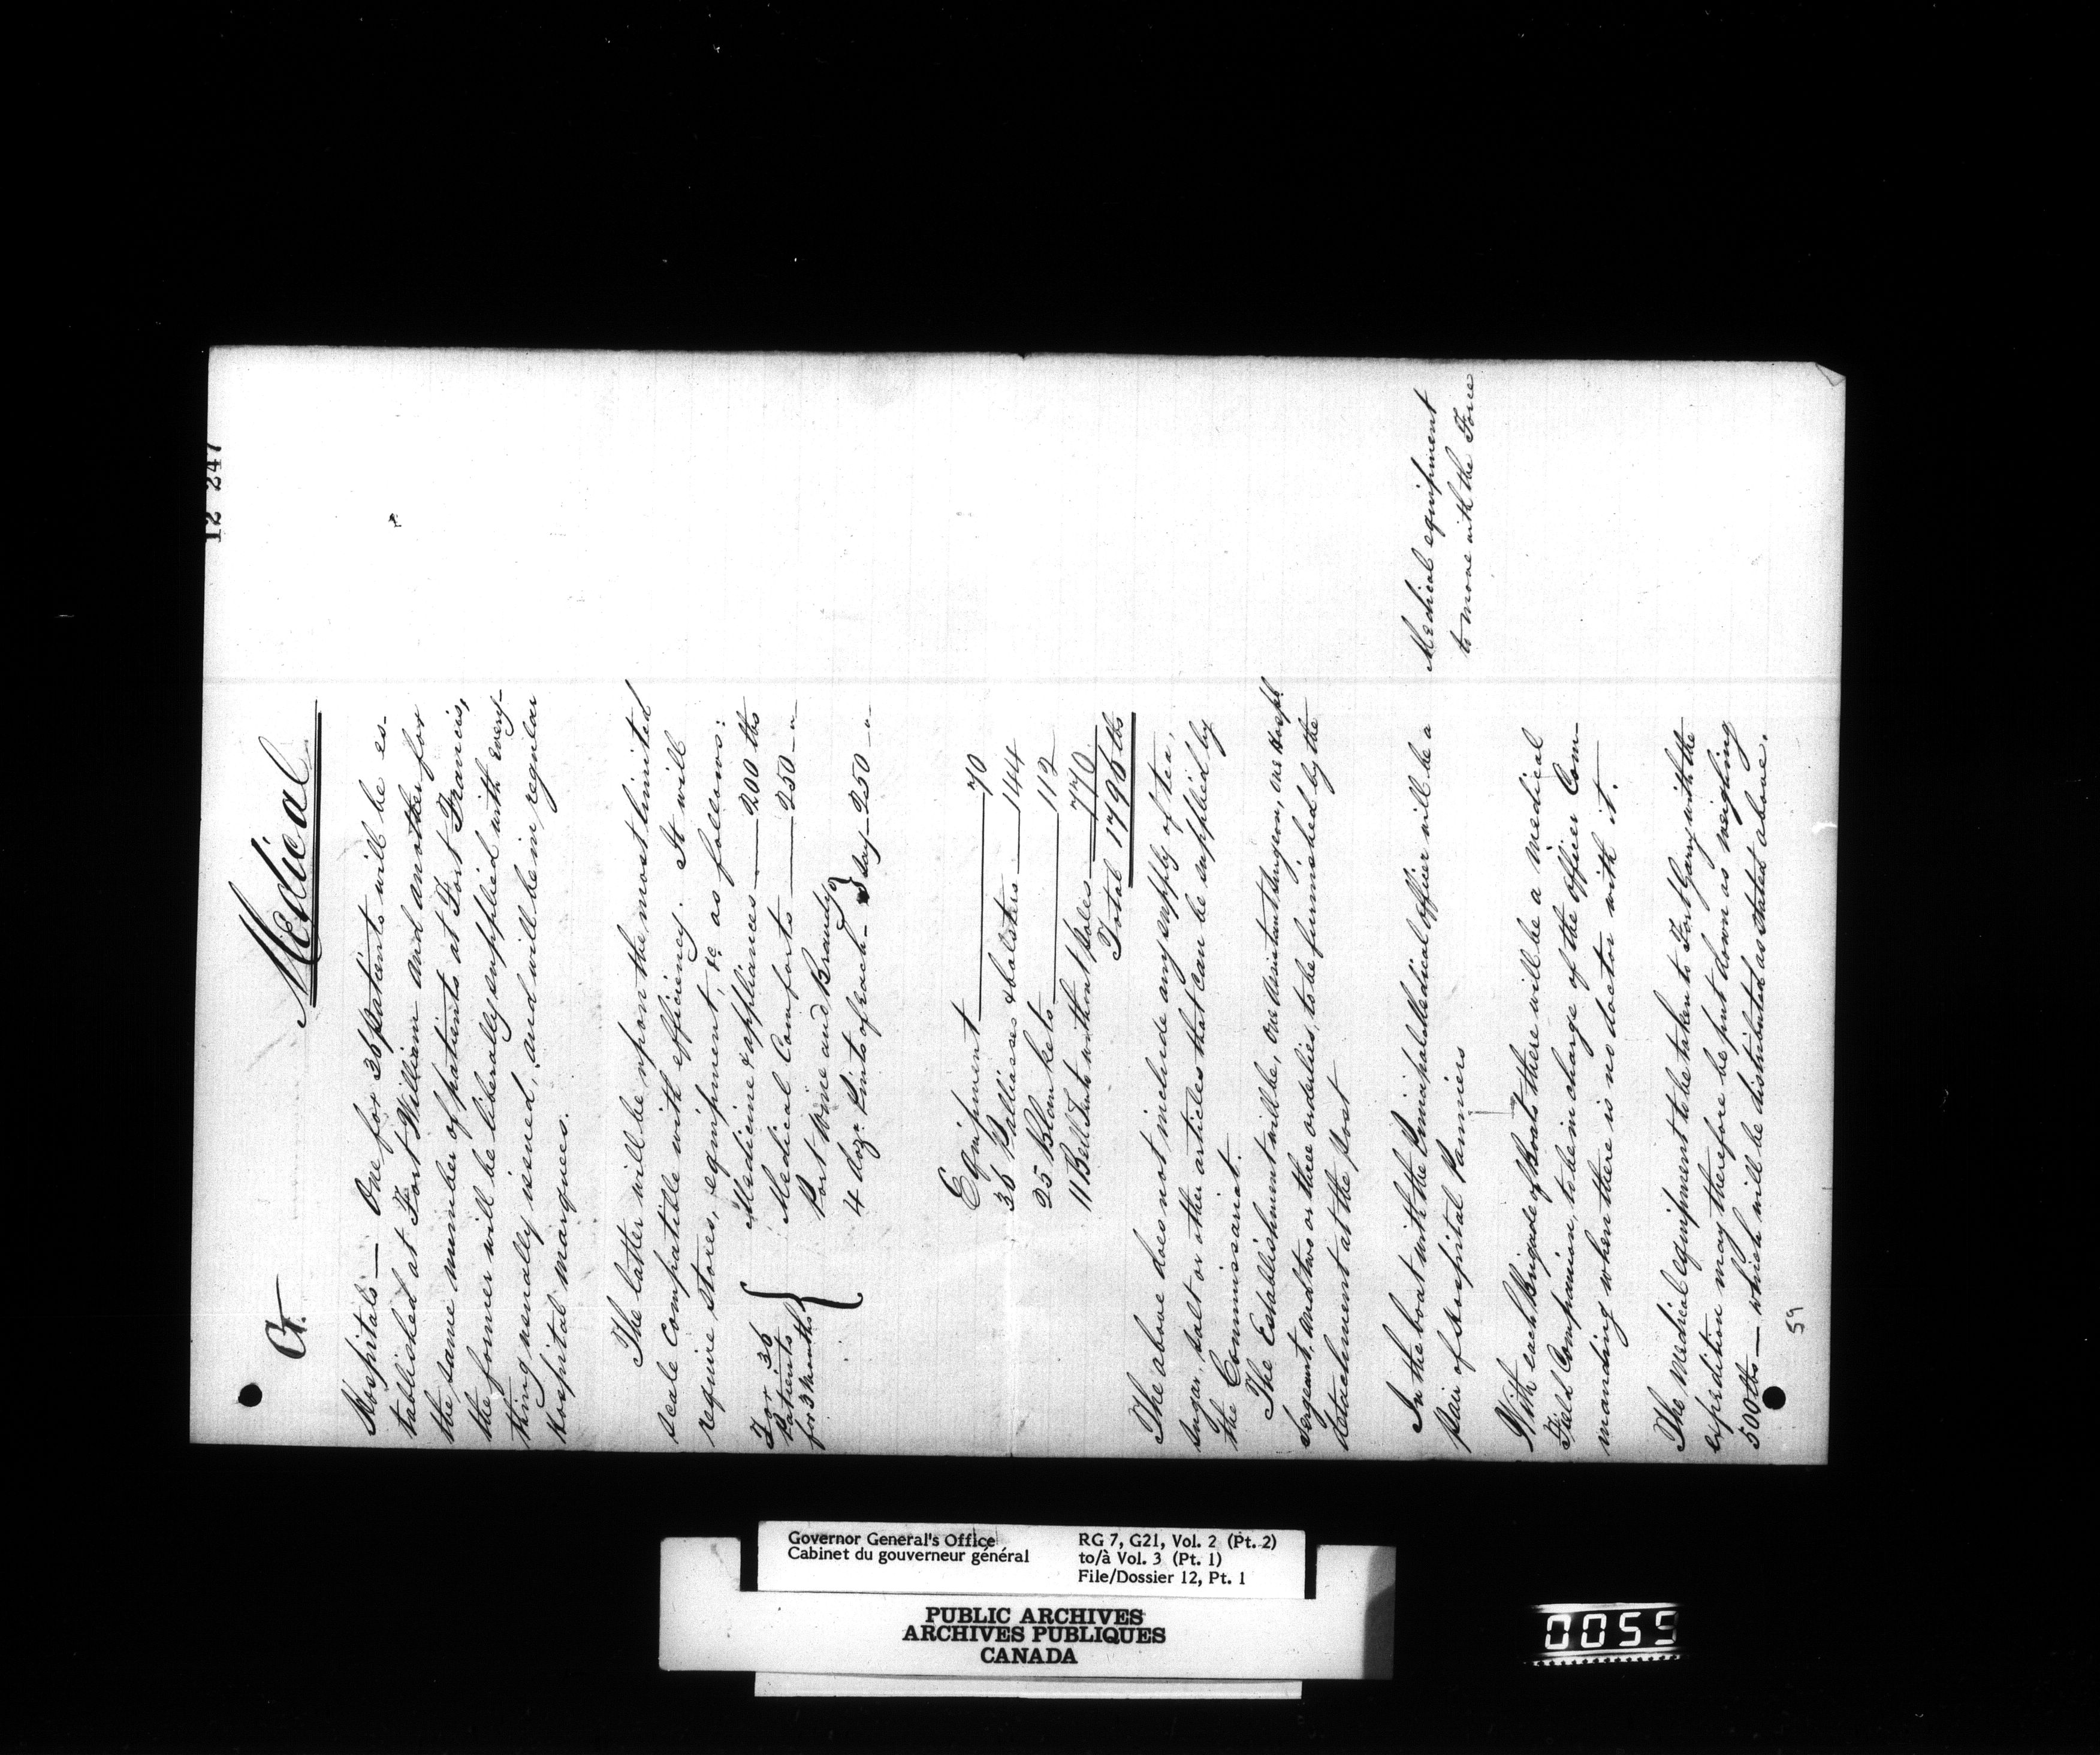 12 247
G.
Medical
Hospitals — One for 36 patients will be es-
tablished at Fort William and another for
the same number of patients at Fort Francis,
the former will be liberally supplied with every-
thing usually issued, and will be in regular
Hospital marquees.
The latter will be upon the most limited
scale compatible with efficiency. It will
require stores, equipment, &c as follows:
For 36
Patients
for 3 Months
Medicine & appliances — 200 lbs
Medical Comforts — 250 — "
Port Wine and Brandy
4 doz. Pints of each — say — 250 — "
Equipment — 70
36 Palliasses & bolsters — 144
25 Blankets — 112
11 Bell Tents without poles — 770
Total 1796 lbs
The above does not include any supply of tea,
sugar, salt or other articles that can be supplied by
the Commissariat.
The Establishment will be, one assistant surgeon, one Hospl.
Sergeant, and two or three orderlies, to be furnished by the
detachment at the post
In the boat with the Principal Medical officer will be a
pair of Hospital Panniers
Medical equipment
to move with the Force
With each Brigade of Boats there will be a medical
Field Companion, to be in charge of the officer Com-
manding when there is no doctor with it.
The Medical equipment to be taken to Fort Garry with the
expedition may therefore be put down as weighing
500 lbs — which will be distributed as stated above.
59
Governor General's Office
Cabinet du gouverneur général
RG 7, G21, Vol. 2 (Pt. 2)
to/à Vol. 3 (Pt. 1)
File/Dossier 12, Pt. 1
PUBLIC ARCHIVES
ARCHIVES PUBLIQUES
CANADA
0055